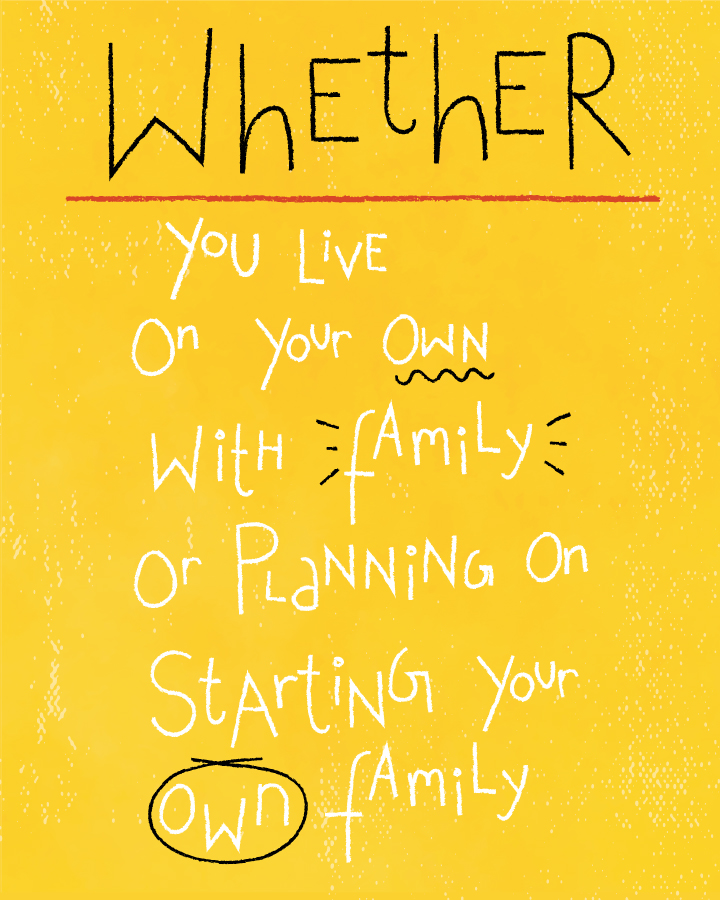 WhETHER
You LivE
On your OWN
With fAmiLy
Or PLaNNiNG On
StArtiNG your
Own fAmiLy